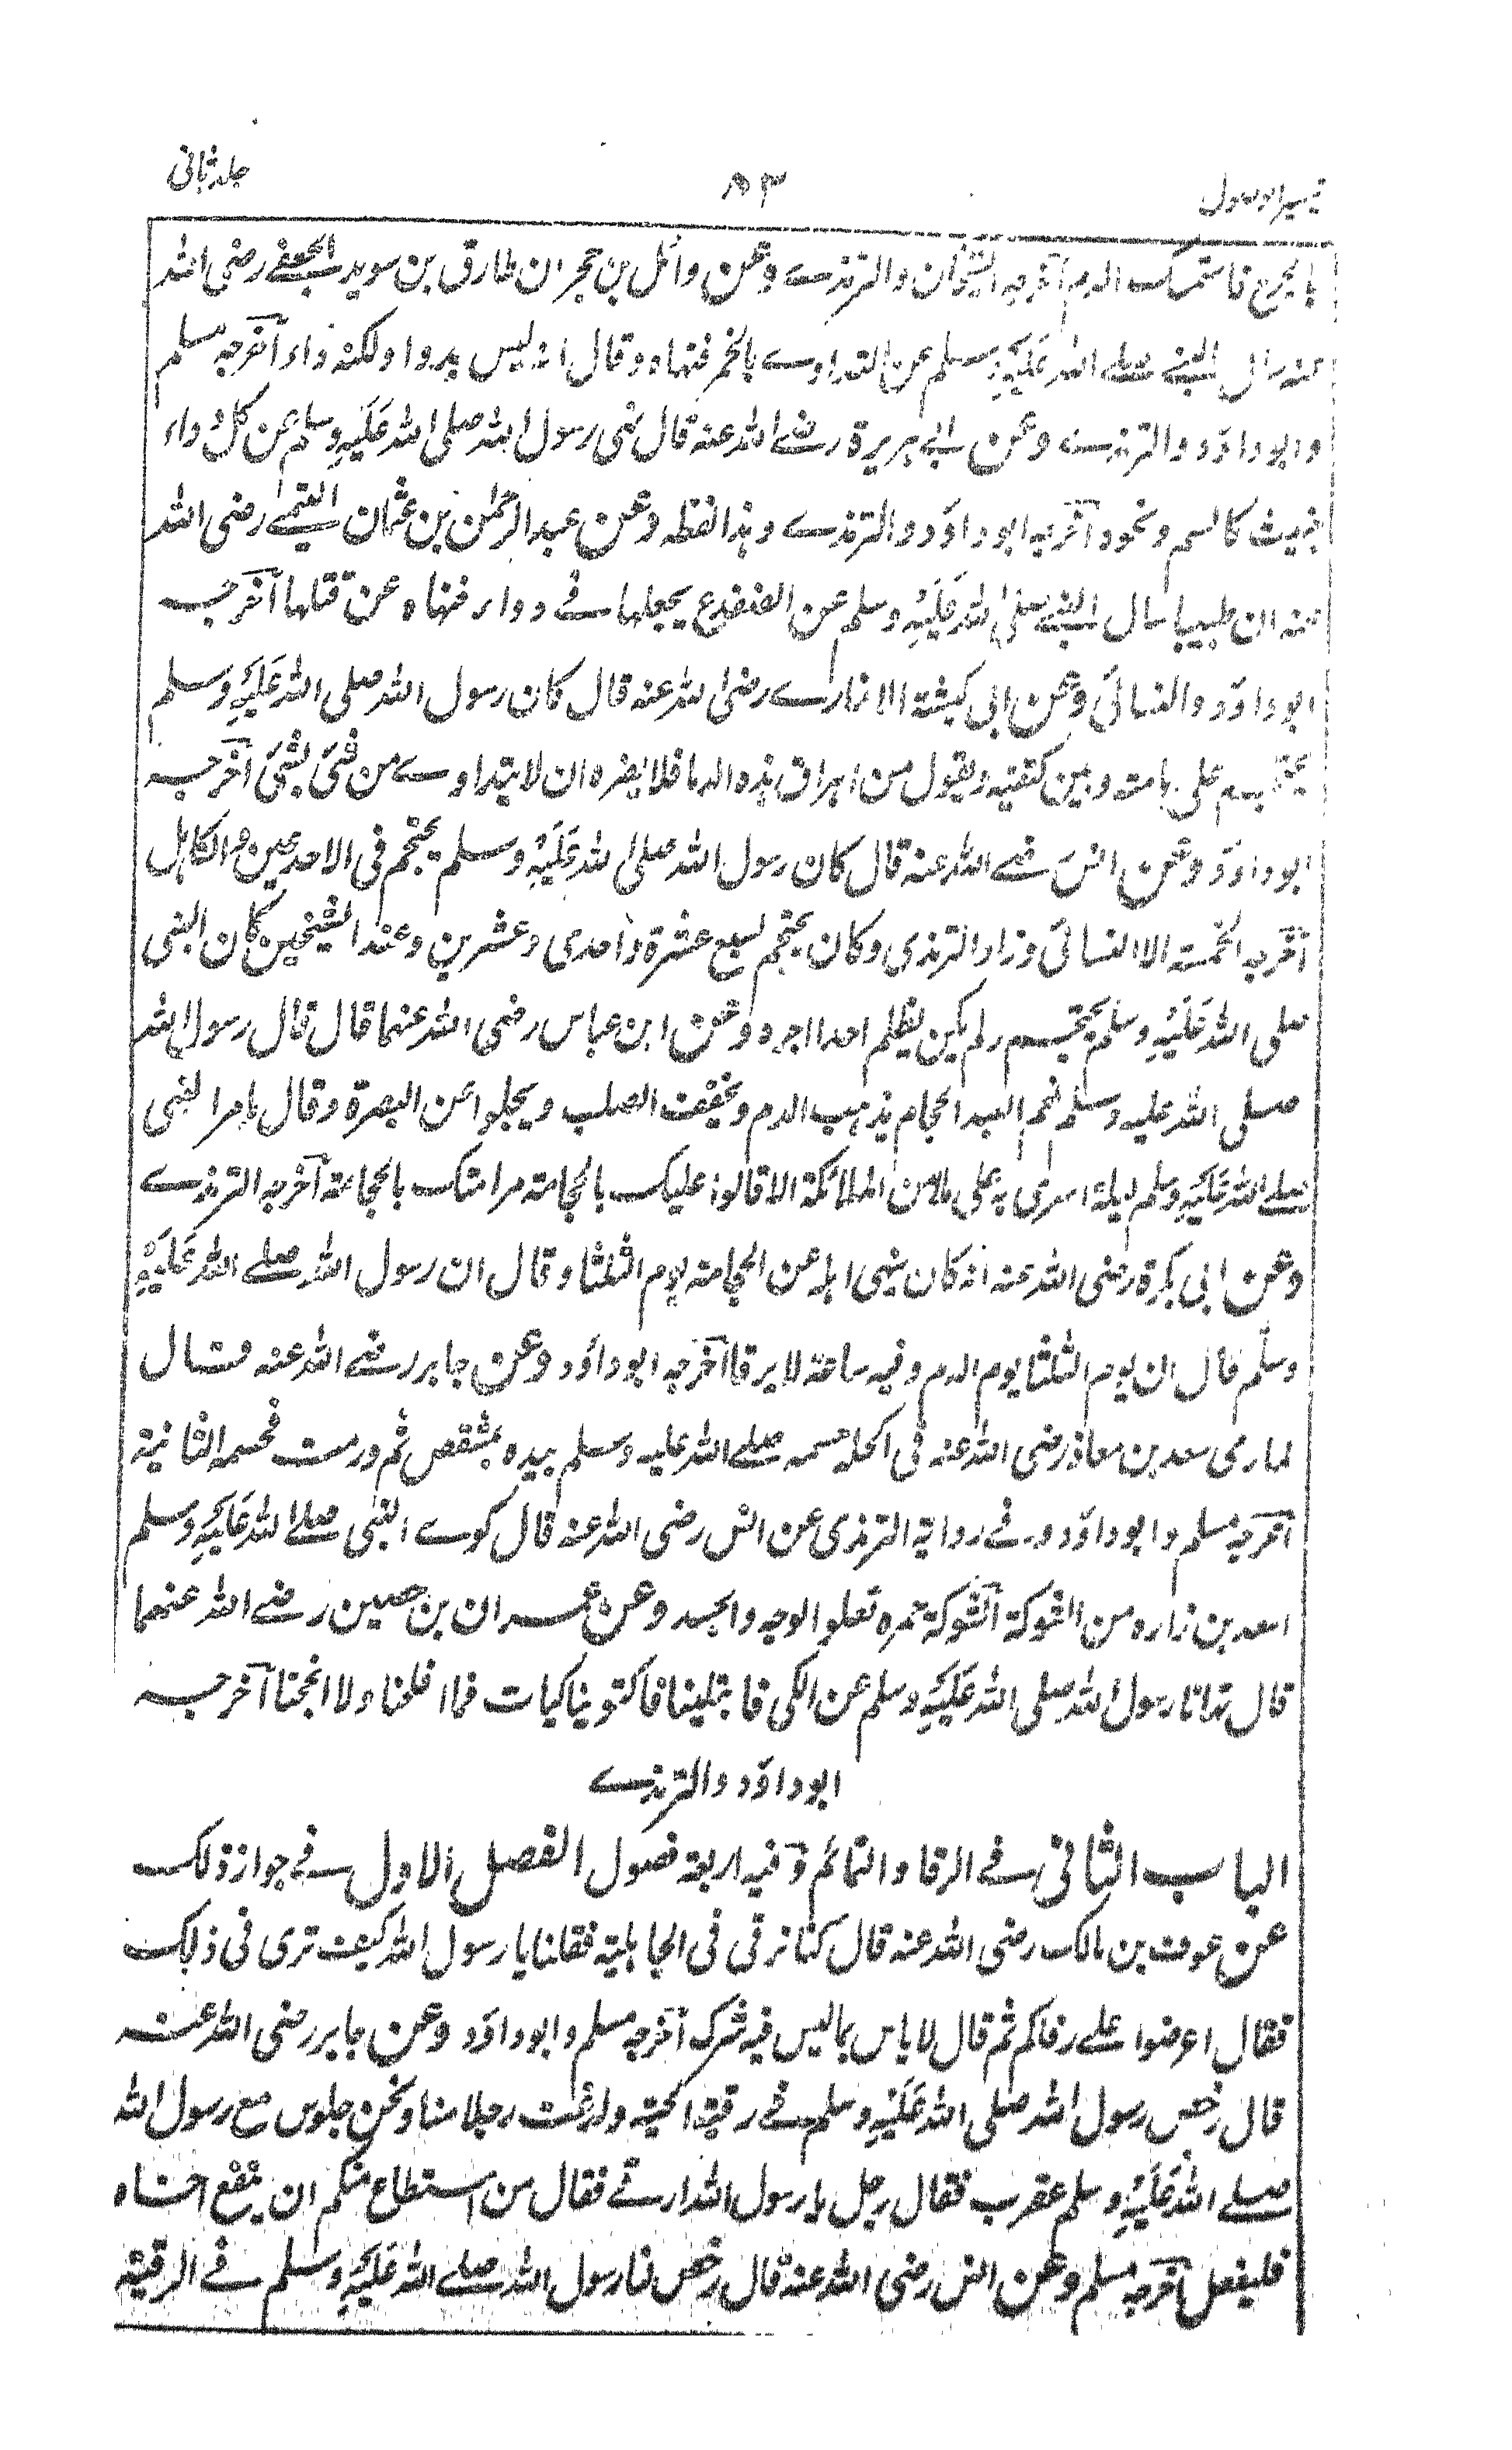 تيسير الوصول ۵۳ جلد ثانی
بالجرح فاستمسك الدم أخرجه الشيخان والترمذے وعن وائل بن حجر ان طارق بن سويد الجعفے رضی الله
عنه سال النبے صلے الله عَلَيْهِ وسلم عن التداوے بالخمر فنهاه وقال انه ليس بدواء ولكنه داء أخرجه مسلم
وابو داؤد والترمذے وعن ابے هريرة رضے الله عنه قال نهى رسول الله صلی الله عَلَيْهِ وسلم عن كل داء
خبيث كالسم ونحوه أخرجه ابو داؤد والترمذے وهذا لفظه وعن عبد الرحمٰن بن عثمان التيمے رضی الله
عنه ان طبيبا سال النبے صلی الله عَلَيْهِ وسلم عن الضفدع يجعلها فے دواء فنهاه عن قتلها أخرجه
ابو داؤد والنسائی وعن ابی كبشة الانمارے رضی الله عنه قال كان رسول الله صلی الله عَلَيْهِ وسلم
يحتجم علی هامته وبين كتفيه ويقول من اهراق هذه الدما فلا يضره ان لا يتداوے من شئ بشئ أخرجه
ابو داؤد وعن انس رضے الله عنه قال كان رسول الله صلی الله عَلَيْهِ وسلم يحتجم فی الاخدعين والكاهل
أخرجه الخمسة الا النسائی وزاد الترمذی وكان يحتجم لسبع عشرة واحدی وعشرين وعند الشيخين كان النبی
صلی الله عَلَيْهِ وسلم يحتجم ولم يكن يظلم احدا اجره وعن ابن عباس رضی الله عنهما قال قال رسول الله
صلی الله عليه وسلم نعم العبد الحجام يذهب الدم ويخفف الصلب ويجلوا عن البصرة وقال ما مر النبی
صلے الله عَلَيْهِ وسلم ليلة اسری به علی ملا من الملائكة الا قالوا عليك بالحجامة مر امتك بالحجامة أخرجه الترمذے
وعن ابی بكرة رضی الله عنه انه كان ينهی اهله عن الحجامة يوم الثلثا وقال ان رسول الله صلے الله عَلَيْهِ
وسلّم قال ان يوم الثلثا يوم الدم وفيه ساعة لا يرقا أخرجه ابو داؤد وعن جابر رضے الله عنه قال
لما رمی سعد بن معاذ رضی الله عنه فی اكحله حسمه صلے الله عليه وسلم بيده بمشقص ثم ورمت فحسمه الثانية
أخرجه مسلم وابو داؤد وفے رواية الترمذی عن انس رضی الله عنه قال كوے النبی صلے الله عَلَيْهِ وسلم
اسعد بن زاره من الشوكة الشوكة حمره تعلو الوجه والجسد وعن عمران بن حصين رضے الله عنهما
قال نهانا رسول الله صلی الله عَلَيْهِ وسلم عن الكی فابتلينا فاكتوينا كيات فما افلحنا ولا انجحنا أخرجه
ابو داؤد والترمذے
الباب الثانی فے الرقا والتمائم وفيه اربعة فصول الفصل الاول فے جواز ذلك
عن عوف بن مالك رضی الله عنه قال كنا نرقی فی الجاهلية فقلنا يا رسول الله كيف تری فی ذلك
فقال اعرضوا علے رقاكم ثم قال لا باس بما ليس فيه شرك أخرجه مسلم وابو داؤد وعن جابر رضی الله عنه
قال رخص رسول الله صلی الله عَلَيْهِ وسلم فے رقية الحية ولدغت رجلا منا ونحن جلوس مع رسول الله
صلے الله عَلَيْهِ وسلم عقرب فقال رجل يا رسول الله ارقے فقال من استطاع منكم ان ينفع اخاه
فليفعل أخرجه مسلم وعن انس رضی الله عنه قال رخص لنا رسول الله صلے الله عَلَيْهِ وسلم فے الرقية